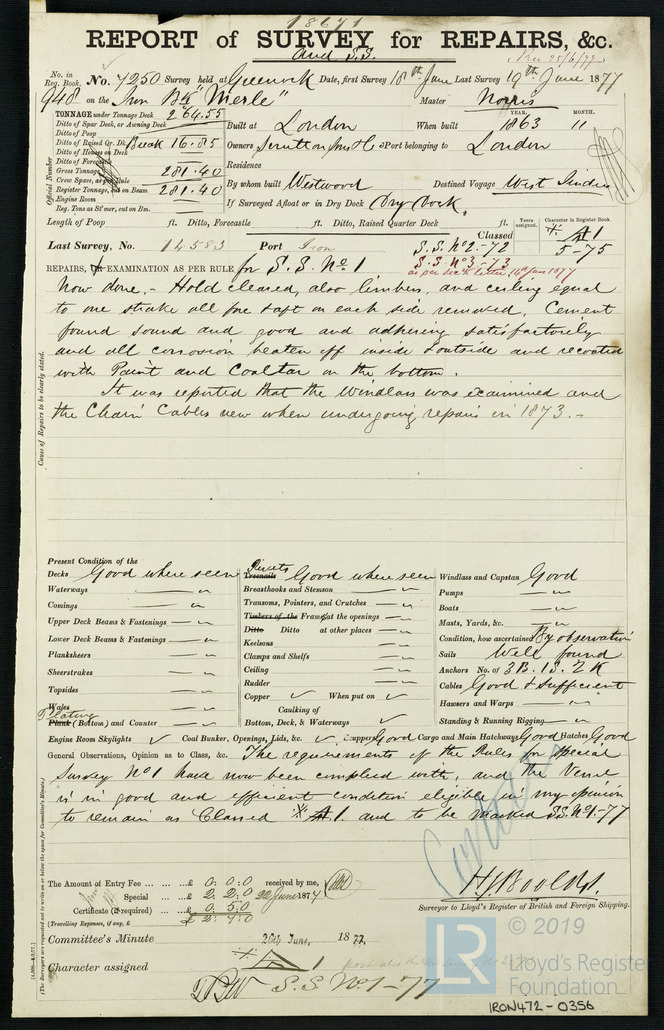 18671
REPORT of SURVEY for REPAIRS, &c.
and S.S.
Rec 25/6/77
No. in Reg. Book. No. 7250 Survey held at Greenock Date, first Survey 18th June Last Survey 19th June 1877
948 on the Iron Bk "Merle" Master Norris
TONNAGE under Tonnage Deck 264.55
Ditto of Spar Deck, or Awning Deck
Ditto of Poop
Ditto of Raised Qr. Dk. Break 16.85
Ditto of Houses on Deck
Ditto of Forecastle
Gross Tonnage 281.40
Crew Space, as per Rule
Register Tonnage, cut on Beam 281.40
Engine Room
Reg. Tons as St'mer, cut on Bm.
Official Number
Built at London When built YEAR. 1863 MONTH. 11
Owners Port belonging to London
Residence
By whom built Westwood Destined Voyage West Indies
If Surveyed Afloat or in Dry Dock Dry Dock.
Length of Poop ft. Ditto, Forecastle ft. Ditto, Raised Quarter Deck ft.
Years assigned. Character in Register Book.
Classed A1
5-75
Last Survey, No. 14583 Port Iron S.S. No 2-72
S.S. No 3-73
as per Sec's letter, 14th June 1877
REPAIRS, or EXAMINATION AS PER RULE for S.S. No 1
Now done.- Hold cleared, also limbers, and ceiling equal
to one strake all fore & aft on each side removed. Cement
found sound and good and adhering satisfactorily
and all corrosion beaten off inside & outside and recoated
with Paint and Coaltar on the bottom.
It was reported that the Windlass was examined and
the Chain Cables new when undergoing repairs in 1873.-
Cause of Repairs to be clearly stated.
Present Condition of the
Decks Good where seen
Waterways
Comings
Upper Deck Beams & Fastenings
Lower Deck Beams & Fastenings
Planksheers
Sheerstrakes
Topsides
Wales
Plating
Plank (Bottom) and Counter
Rivets
Treenails Good where seen
Breasthooks and Stemson
Transoms, Pointers, and Crutches
Timbers of the Frames at the openings
Ditto Ditto at other places
Keelsons
Clamps and Shelfs
Ceiling
Rudder
Copper When put on
Caulking of
Bottom, Deck, & Waterways
Windlass and Capstan Good
Pumps
Boats
Masts, Yards, &c.
Condition, how ascertained By observation
Sails Well found
Anchors No. of 3B. 1S. 2K
Cables Good & sufficient
Hawsers and Warps
Standing & Running Rigging
Engine Room Skylights Coal Bunker, Openings, Lids, &c. Scuppers Good Cargo and Main Hatchways Good Hatches Good
General Observations, Opinion as to Class, &c. The requirements of the Rules for Special
Survey No 1 have now been complied with, and the Vessel
is in good and efficient condition eligible in my opinion
to remain as Classed A1 and to be marked S.S. No 1-77
The Amount of Entry Fee £ 0 : 0 : 0 received by me,
Special £ 2 : 2 : 0 22 June 1877
Certificate (if required) £ 0 : 5 : 0
(Travelling Expenses, if any, £ £ 2 : 7 : 0
Surveyor to Lloyd's Register of British and Foreign Shipping.
(The Surveyors are requested not to write on or below the space for Committee's Minute.)
Committee's Minute 26th June, 1877.
Character assigned A1
S.S. No 1-77
© 2019
LR
Lloyd's Register
Foundation
IRON472-0356